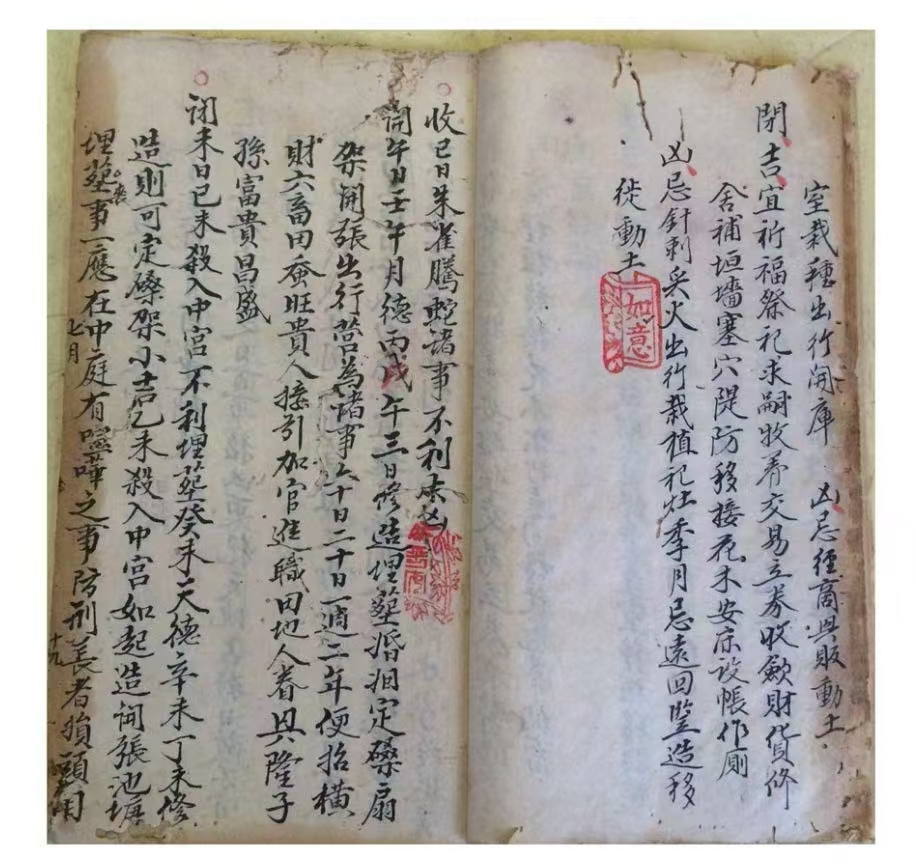 室栽種出行開庫 凶忌經商興販動土
閉吉宜祈福祭祀求嗣牧养交易立券收歛財貨修
舍補垣墻塞穴隄防移接花木安床设帳作厠
凶忌針刺炙火出行栽植祀灶季月忌遠回竪造移
徙動土
如意
收巳日朱雀騰蛇諸事不利 凶
開午日壬午月德丙戊午三日修造埋塟婚姻定磉扇
架開張出行营為諸事六十日二十日一週二年便招橫
財六畜田蚕旺貴人接引加官進職田地人眷興隆子
孫富貴昌盛
闭未日己未殺入中宫不利埋塟癸未天德辛未丁未修
造則可定磉架小吉乙未殺入中宫如起造開張池塘
埋塟事一應在中庭有喧嘩之事防刑 者損頭
喪
七月
十九